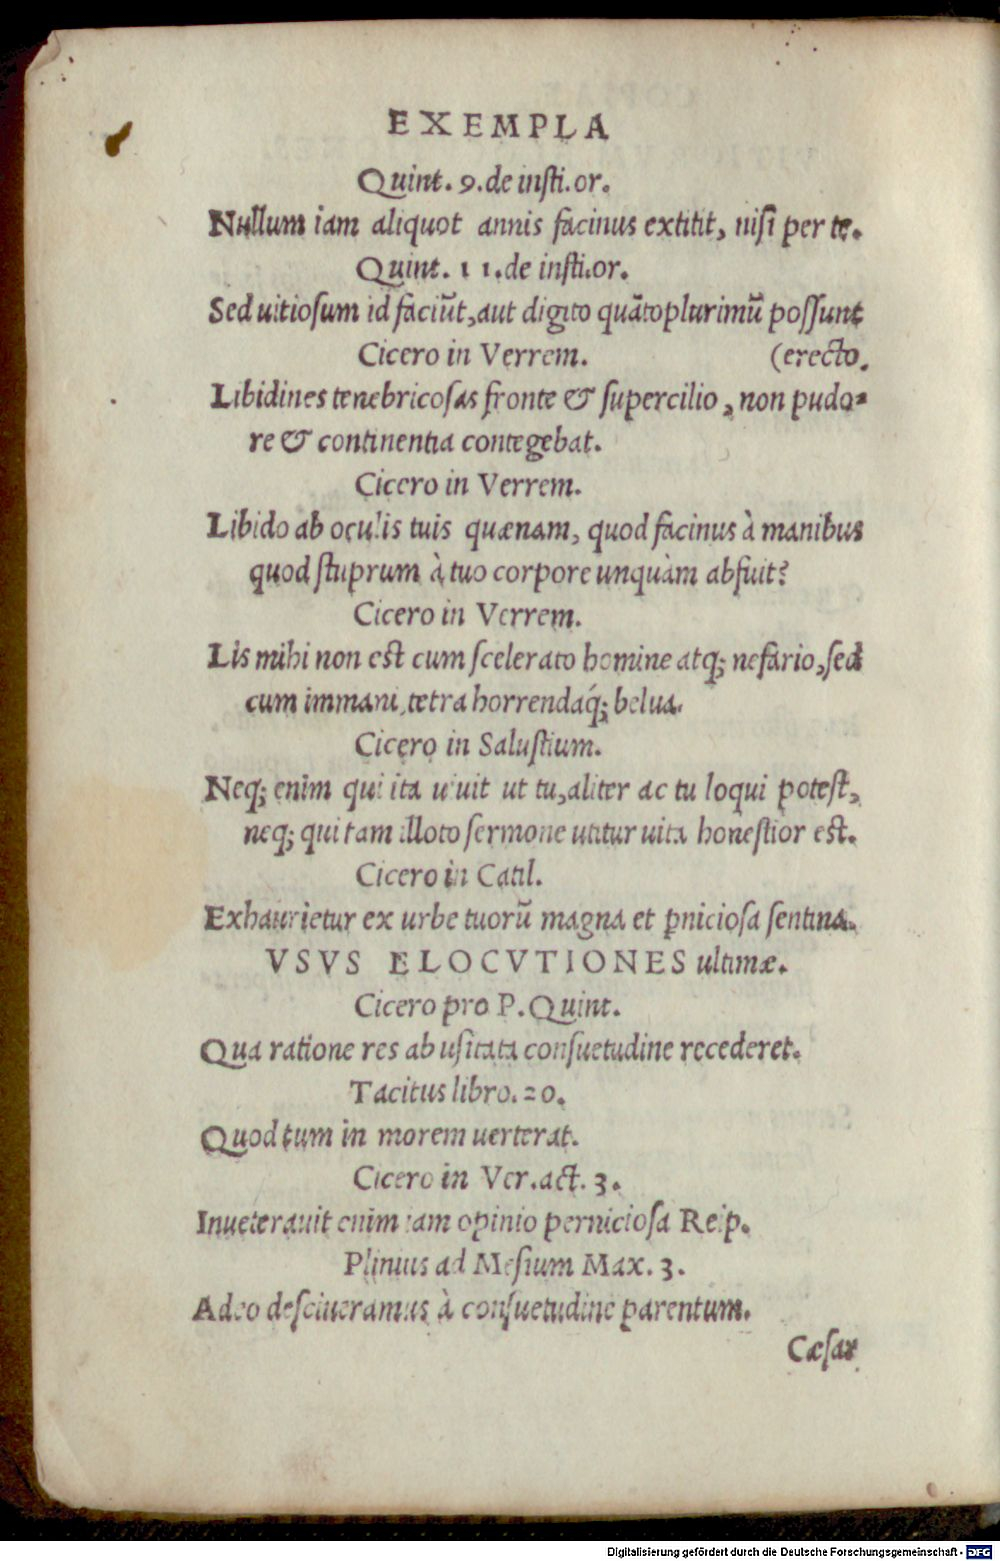 EXEMPLA
Quint. 9. de insti. or.
Nullum iam aliquot annis facinus extitit, nisi per te.
Quint. 11. de insti. or.
Sed uitiosum id faciūt, aut digito quātoplurimū possunt
Cicero in Verrem. (erecto.
Libidines tenebricosas fronte & supercilio, non pudo-
re & continentia contegebat.
Cicero in Verrem.
Libido ab oculis tuis quænam, quod facinus à manibus
quod stuprum à tuo corpore unquàm abfuit?
Cicero in Verrem.
Lis mihi non est cum scelerato homine atq; nefario, sed
cum immani, tetra horrendaq́; belua.
Cicero in Salustium.
Neq; enim qui ita uiuit ut tu, aliter ac tu loqui potest,
neq; qui tam illoto sermone utitur uita honestior est.
Cicero in Catil.
Exhaurietur ex urbe tuorū magna et ꝑniciosa sentina.
VSVS ELOCVTIONES ultimæ.
Cicero pro P. Quint.
Qua ratione res ab usitata consuetudine recederet.
Tacitus libro. 20.
Quod tum in morem uerterat.
Cicero in Ver. act. 3.
Inueterauit enim iam opinio perniciosa Reip.
Plinius ad Mesium Max. 3.
Adeo desciueramus à consuetudine parentum.
Cæsar
Digitalisierung gefördert durch die Deutsche Forschungsgemeinschaft - DFG